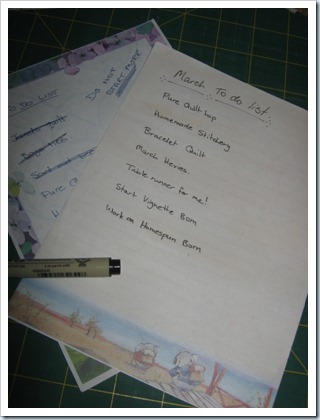 March To do list
Pure Quilt hop
Homemade Stitchery
Bracelet Quilt
March Hexies.
Table runner for me!
Start Vignette Bom
Work on Homespun Barn
To Do List
Do Not
Pure Q